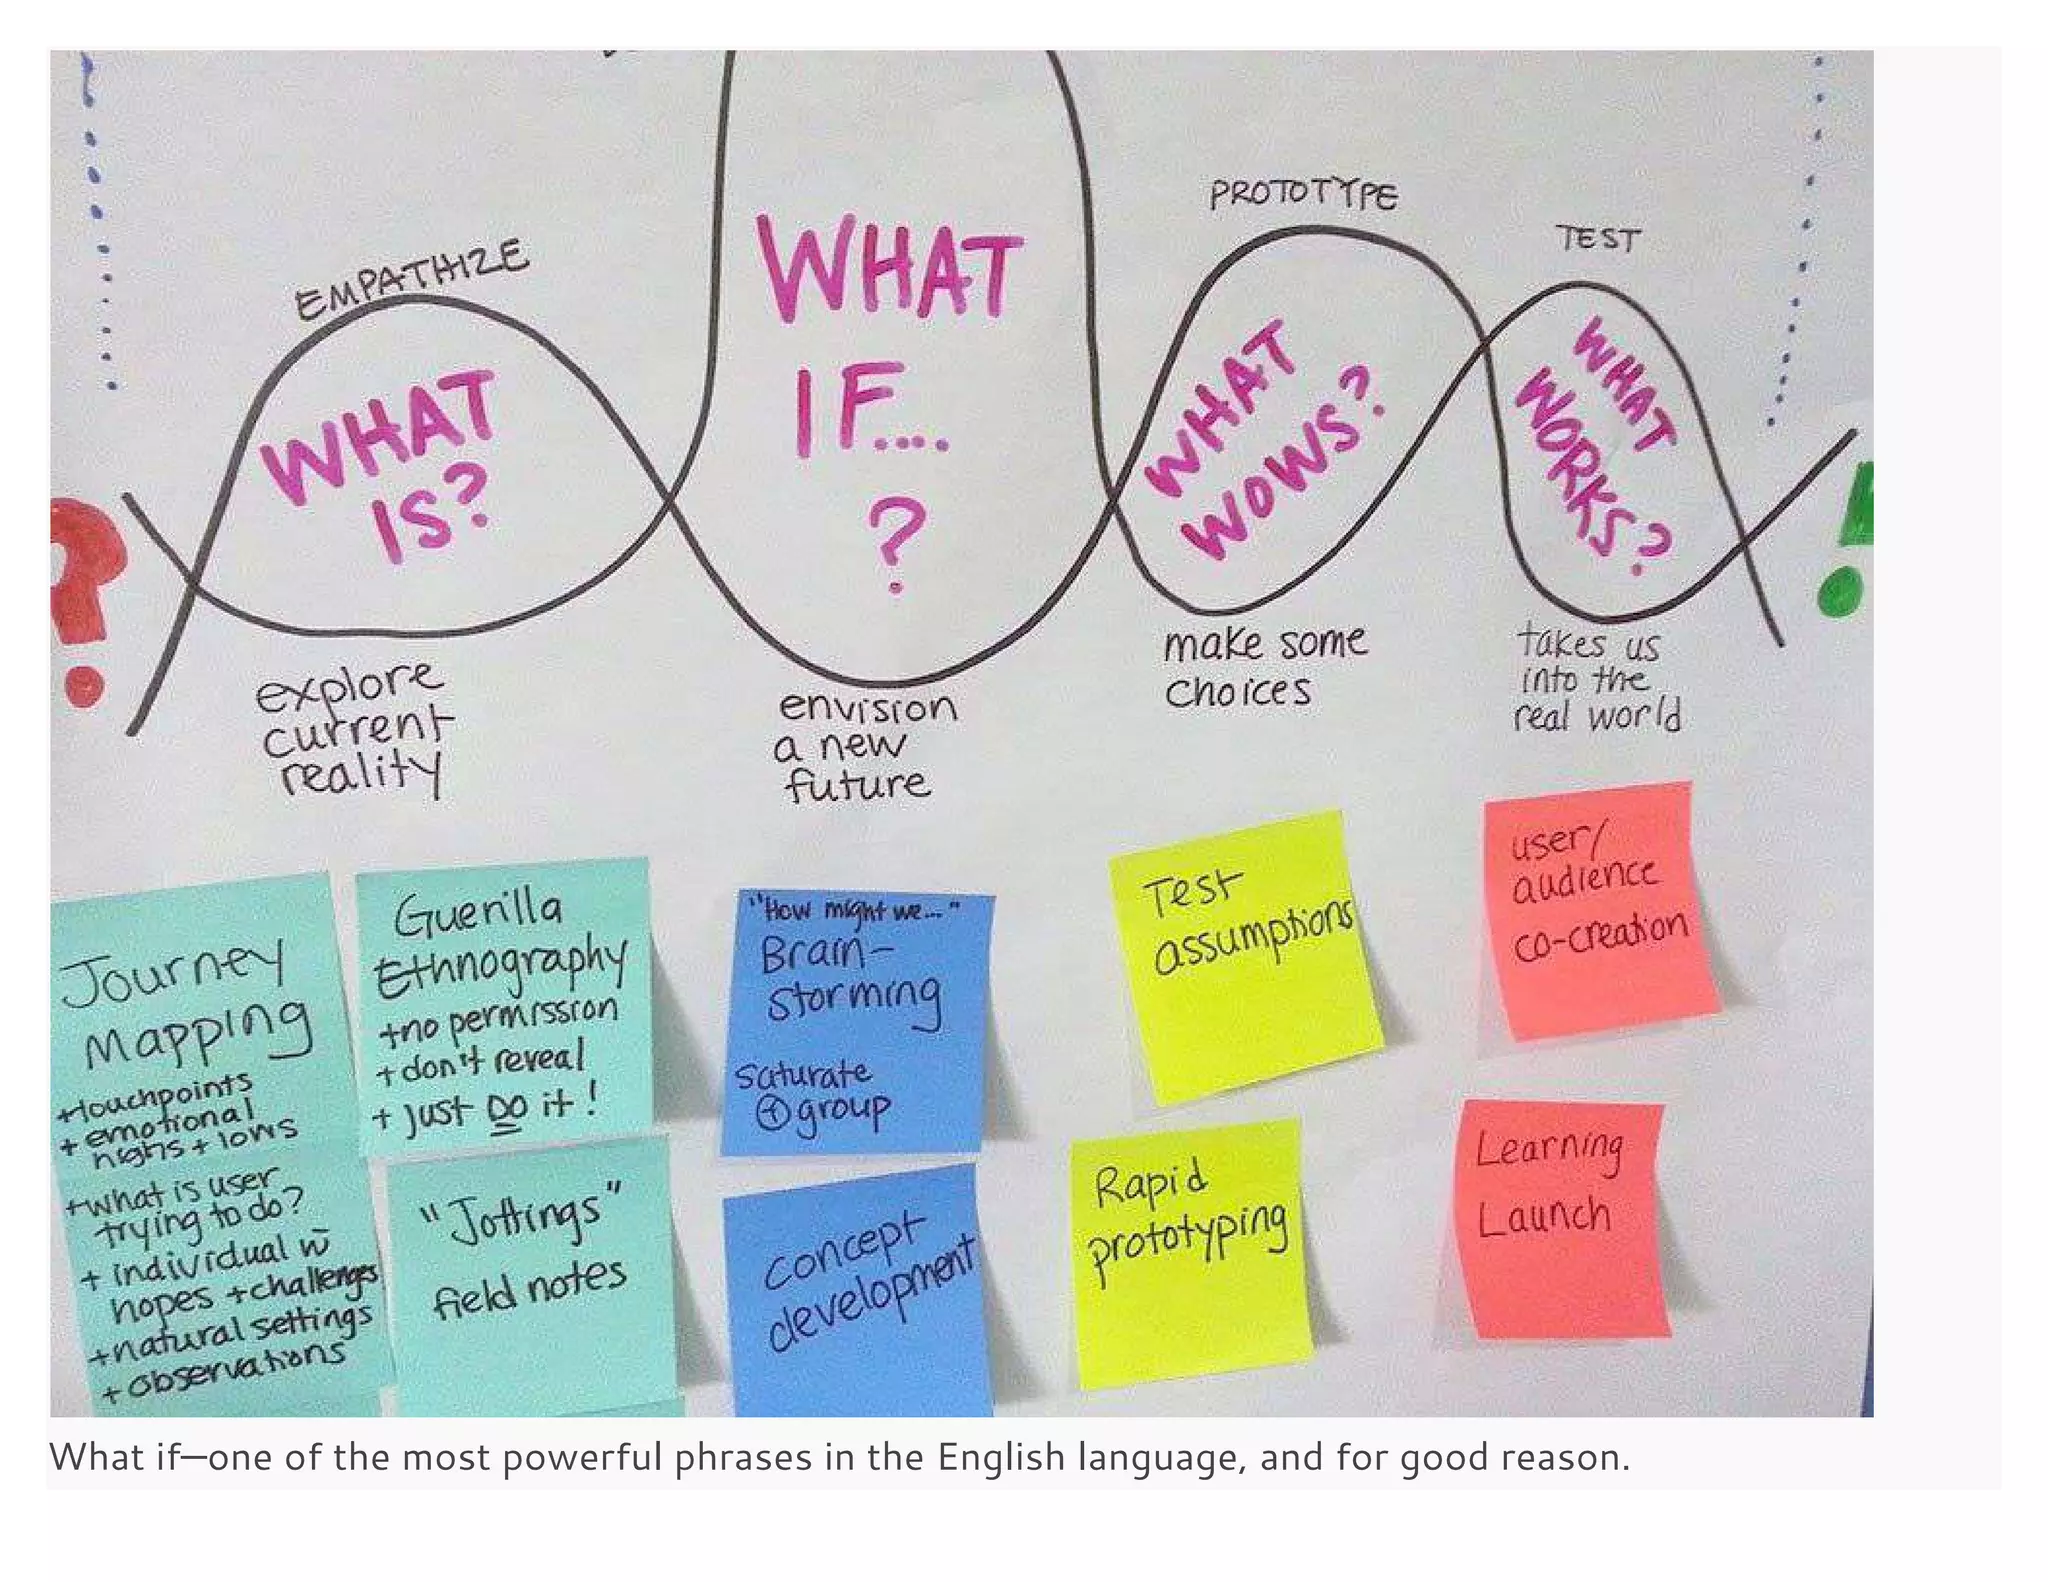 EMPATHIZE
WHAT
IS?
explore
current
reality
WHAT
IF....
?
envision
a new
future
PROTOTYPE
WHAT
WOWS?
make some
choices
TEST
WHAT
WORKS?
takes us
into the
real world
?
!
Journey
Mapping
+touchpoints
+ emotional
highs + lows
+what is user
trying to do?
+ individual w
hopes + challenges
+natural settings
+ observations
Guerilla
Ethnography
+no permission
+ don't reveal
+ just DO it!
"Jottings"
field notes
"How might we..."
Brain-
storming
saturate
+ group
concept
development
Test
assumptions
Rapid
prototyping
user/
audience
co-creation
Learning
Launch
What if—one of the most powerful phrases in the English language, and for good reason.